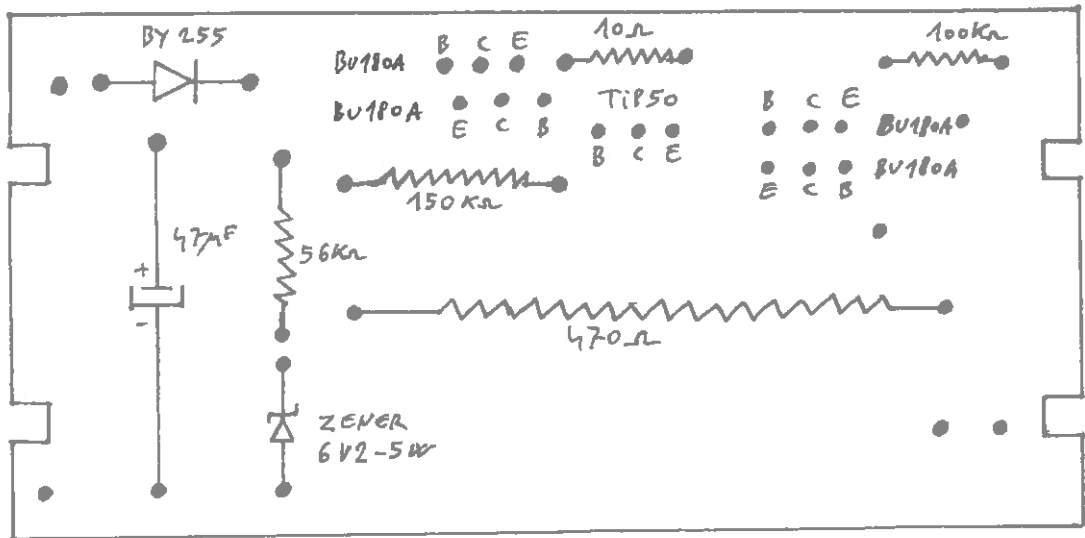 BY 255
BU180A
B C E
10Ω
100KΩ
BU180A
E C B
TiP50
B C E
B C E
BU180A
E C B
BU180A
150KΩ
47µF
+
-
56KΩ
470Ω
ZENER
6V2-5W